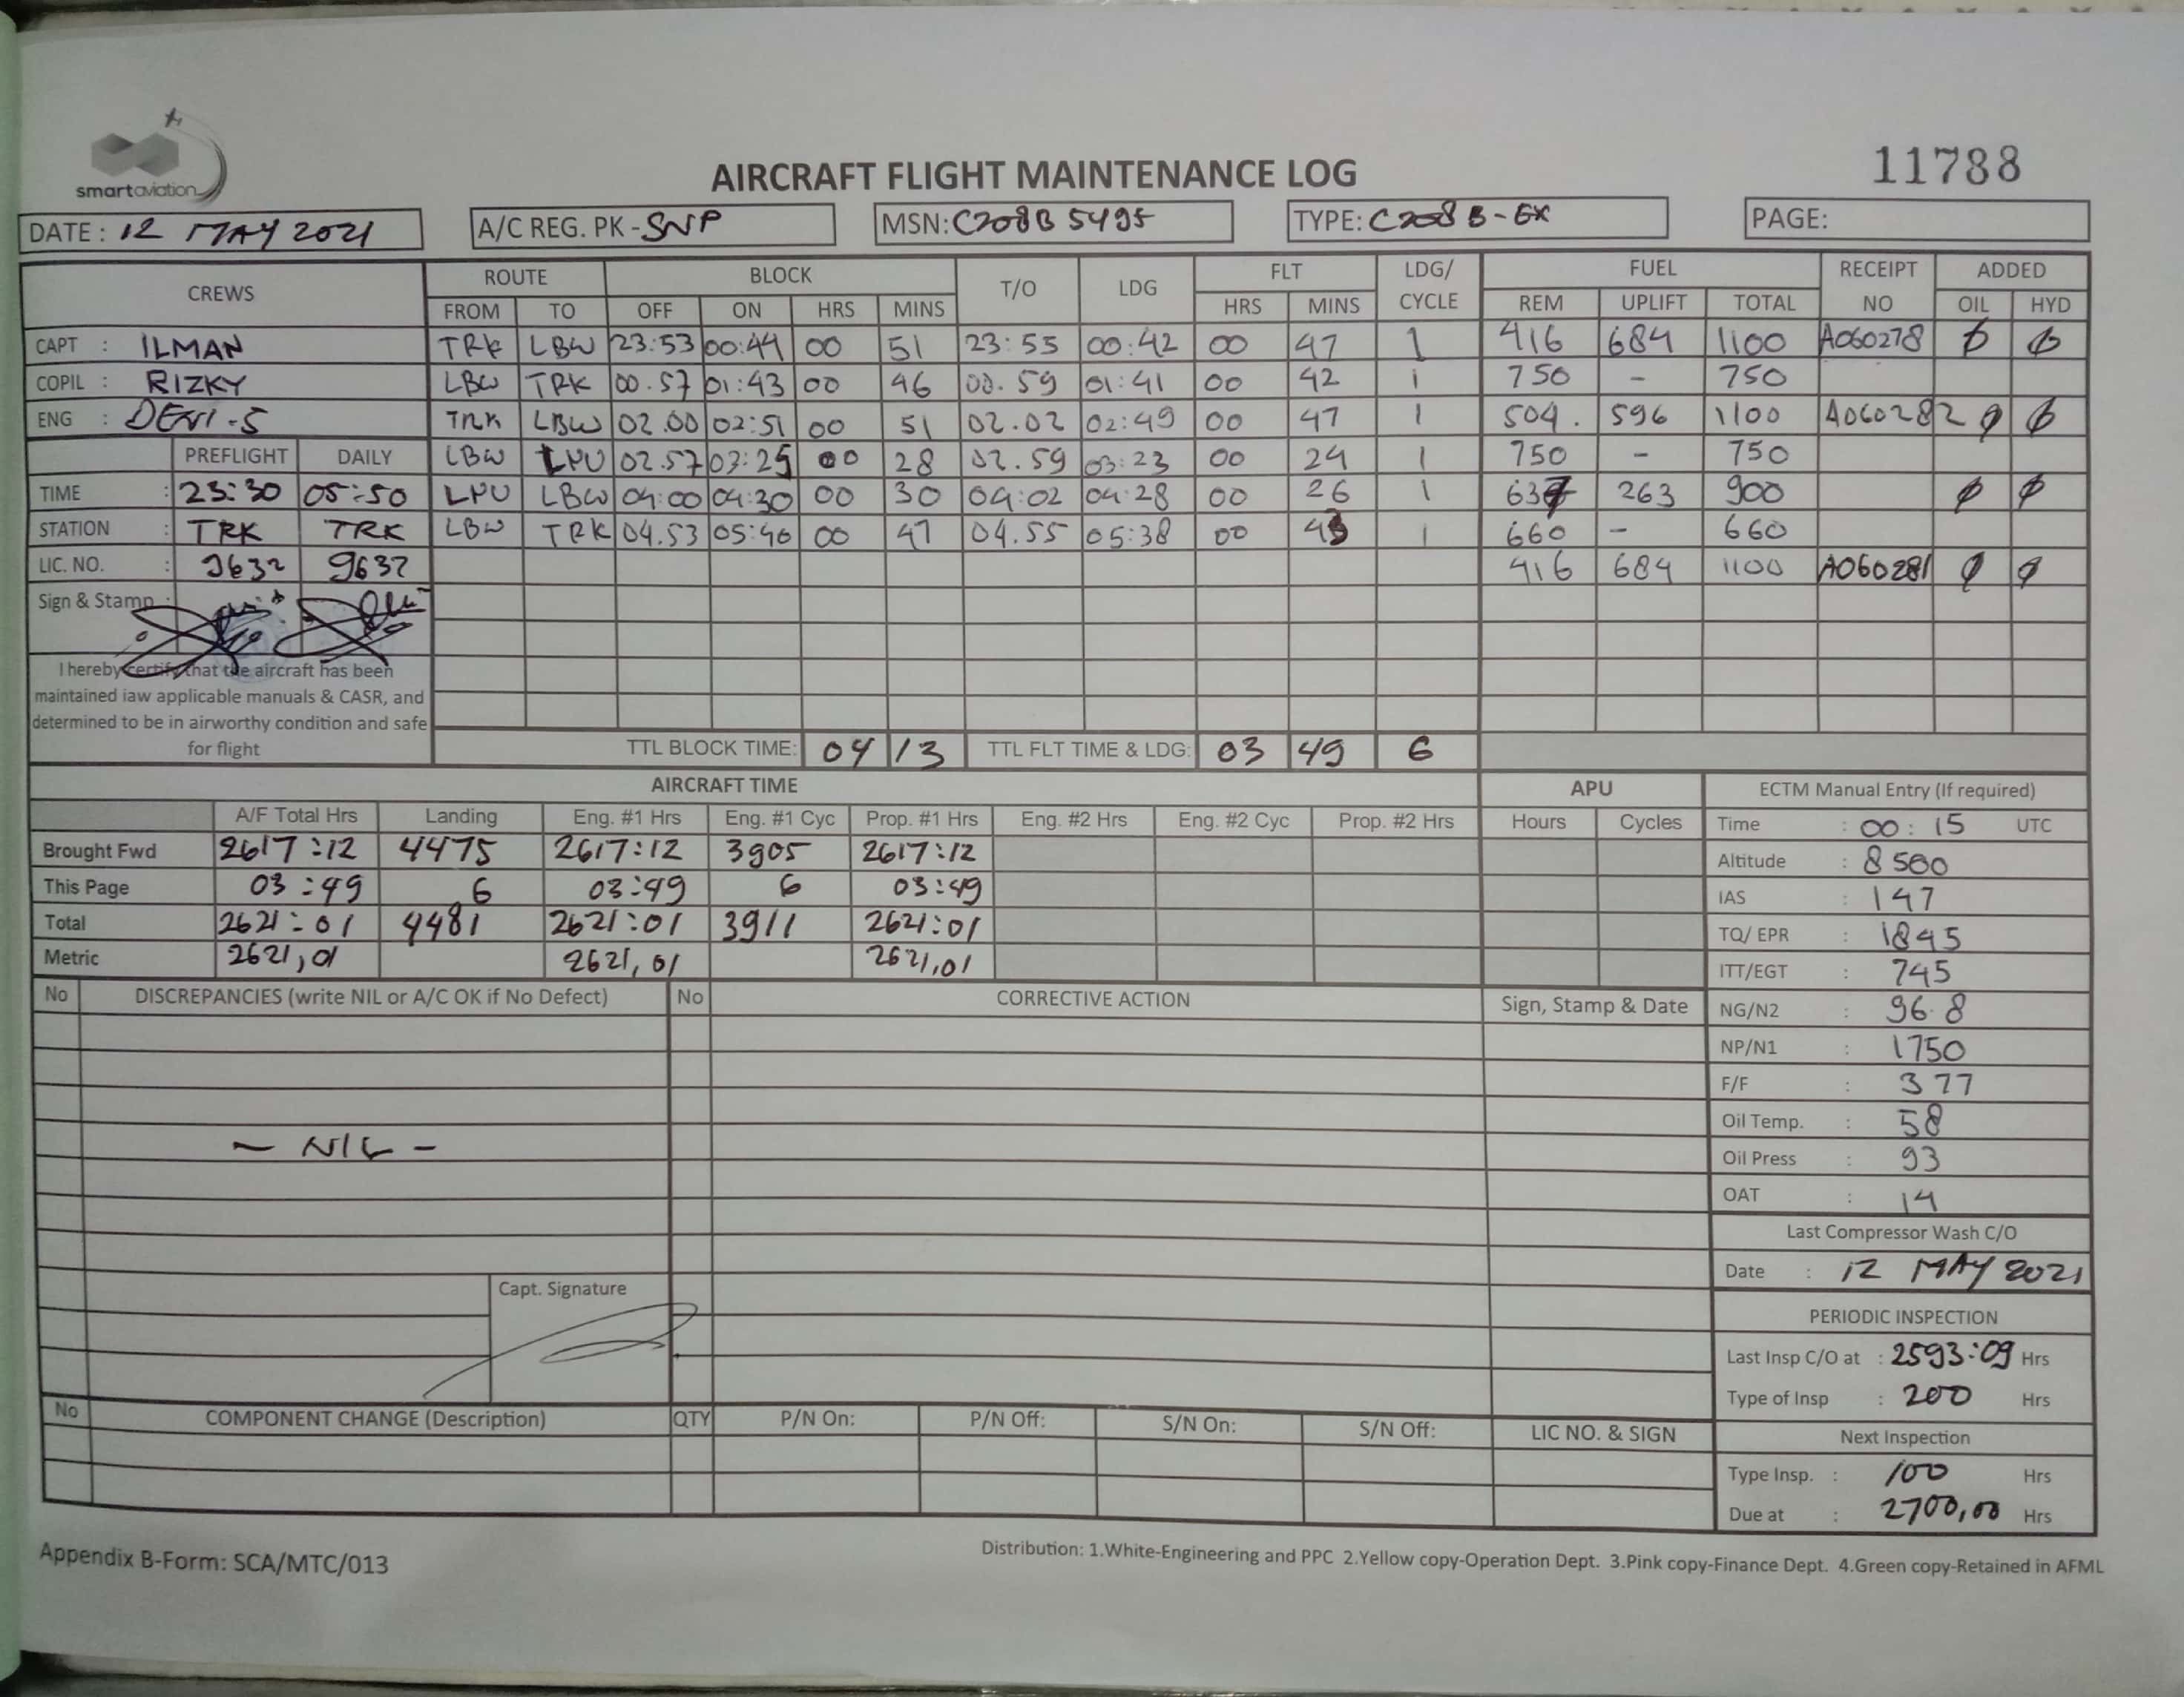 smartaviation
AIRCRAFT FLIGHT MAINTENANCE LOG
11788
DATE : 12 MAY 2021 A/C REG. PK - SNP MSN: C208B 5495 TYPE: C208 B - EX PAGE:
CREWS ROUTE BLOCK T/O LDG FLT LDG/ CYCLE FUEL RECEIPT NO ADDED
FROM TO OFF ON HRS MINS HRS MINS REM UPLIFT TOTAL OIL HYD
CAPT : ILMAN TRK LBW 23:53 00:44 00 51 23:55 00:42 00 47 1 416 684 1100 A060278 ø ø
COPIL : RIZKY LBW TRK 00.57 01:43 00 46 00.59 01:41 00 42 1 750 - 750
ENG : DENI-S TRK LBW 02.00 02:51 00 51 02.02 02:49 00 47 1 504. 596 1100 A060282 ø ø
PREFLIGHT DAILY LBW LPU 02.57 03:25 00 28 02.59 03:23 00 24 1 750 - 750
TIME : 23:30 05:50 LPU LBW 04:00 04:30 00 30 04:02 04:28 00 26 1 637 263 900 ø ø
STATION : TRK TRK LBW TRK 04.53 05:40 00 47 04.55 05:38 00 43 1 660 - 660
LIC. NO. : 9632 9632 416 684 1100 A060281 ø ø
Sign & Stamp :
I hereby certify that the aircraft has been
maintained iaw applicable manuals & CASR, and
determined to be in airworthy condition and safe
for flight
TTL BLOCK TIME: 04 13 TTL FLT TIME & LDG: 03 49 6
AIRCRAFT TIME APU ECTM Manual Entry (If required)
A/F Total Hrs Landing Eng. #1 Hrs Eng. #1 Cyc Prop. #1 Hrs Eng. #2 Hrs Eng. #2 Cyc Prop. #2 Hrs Hours Cycles Time : 00:15 UTC
Brought Fwd 2617:12 4475 2617:12 3905 2617:12 Altitude : 8500
This Page 03:49 6 03:49 6 03:49 IAS : 147
Total 2621:01 4481 2621:01 3911 2621:01 TQ/ EPR : 1845
Metric 2621,01 2621,01 2621,01 ITT/EGT : 745
No DISCREPANCIES (write NIL or A/C OK if No Defect) No CORRECTIVE ACTION Sign, Stamp & Date NG/N2 : 96.8
NP/N1 : 1750
F/F : 377
Oil Temp. : 58
- NIL - Oil Press : 93
OAT : 14
Last Compressor Wash C/O
Date : 12 MAY 2021
Capt. Signature
PERIODIC INSPECTION
Last Insp C/O at : 2593:09 Hrs
Type of Insp : 200 Hrs
No COMPONENT CHANGE (Description) QTY P/N On: P/N Off: S/N On: S/N Off: LIC NO. & SIGN Next Inspection
Type Insp. : 100 Hrs
Due at : 2700,00 Hrs
Appendix B-Form: SCA/MTC/013
Distribution: 1.White-Engineering and PPC 2.Yellow copy-Operation Dept. 3.Pink copy-Finance Dept. 4.Green copy-Retained in AFML